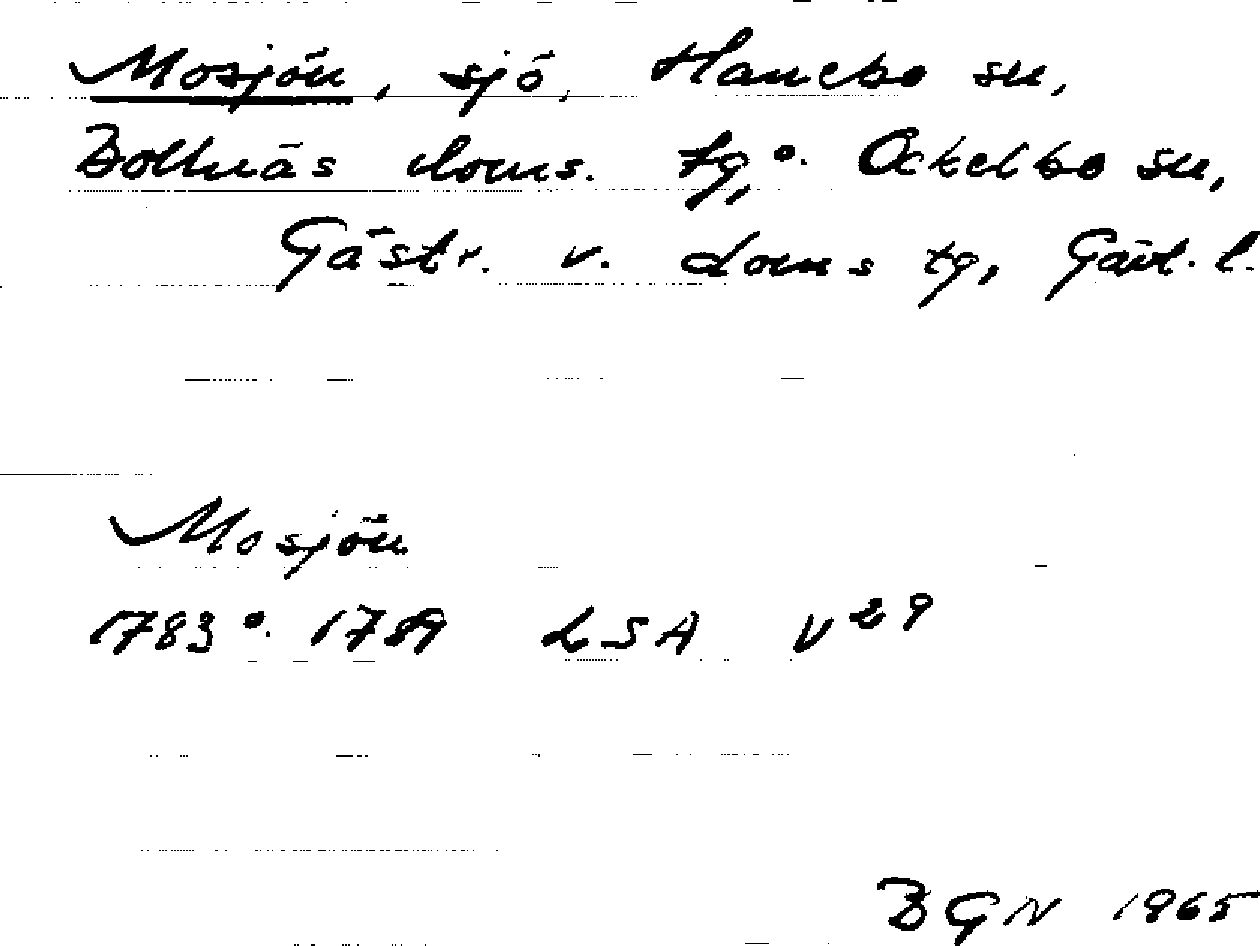 Mosjön, sjö, Hanebo sn,
Bollnäs doms. tg, o. Ockelbo sn,
Gästr. v. doms tg, Gävl. l.
Mosjön
1783 o. 1789 LSA V 29
BGN 1965